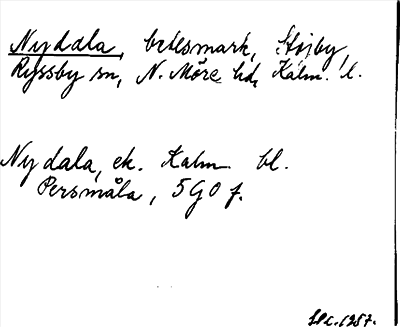 Nydala, betesmark, Stojby,
Ryssby sn, N. Möre hd, Kalm. l.
Nydala, ek. Kalm bl.
Persmåla, 5G0 f.
1957.